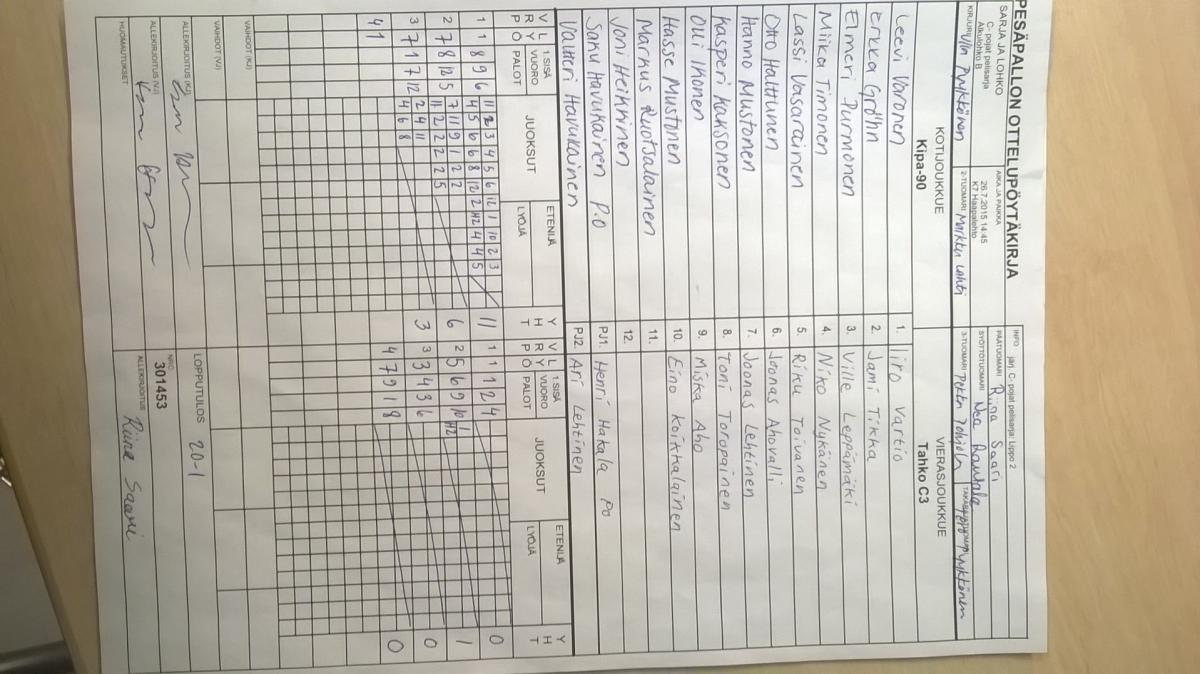 PESÄPALLON OTTELUPÖYTÄKIRJA
SARJA JA LOHKO
C- pojat pelisarja
Alkulohko B
AIKA JA PAIKKA
26.7.2015 14:45
K7 Haapalehto
INFO järj. C- pojat pelisarja: Lippo 2
PÄÄTUOMARI Riina Saari
SYÖTTÖTUOMARI Nea Rautala
KIRJURI Pyykkönen
2-TUOMARI Markku Lahti
3-TUOMARI Pekka Pohjola
Pyykkönen
KOTIJOUKKUE
Kipa-90
VIERASJOUKKUE
Tahko C3
Leevi Voronen 1. Iiro Vartio
Erkka Gröhn 2. Jami Tikka
Elmeri Purmonen 3. Ville Leppämäki
Miika Timonen 4. Niko Nykänen
Lassi Vasarainen 5. Riku Toivanen
Otto Halttunen 6. Joonas Ahovalli
Hanno Mustonen 7. Joonas Lehtinen
Kasperi Kaksonen 8. Toni Toropainen
Olli Ikonen 9. Miska Aho
Hasse Mustonen 10. Eino Koikkalainen
Markus Ruotsalainen 11.
Joni Heikkinen 12.
Saku Havukainen P.O PJ1. Henri Hakala Po
Valtteri Havukainen PJ2. Ari Lehtinen
VRP LYÖ 1.SISÄ VUORO PALOT JUOKSUT ETENIJÄ LYÖJÄ YHT VRP LYÖ 1.SISÄ VUORO PALOT JUOKSUT ETENIJÄ LYÖJÄ YHT
1 1 8 9 6 11 12 3 4 5 6 12 1 10 2 3 11 1 1 1 2 4 0
4 5 6 6 8 12 2 12 4 4 5
2 7 8 12 5 7 11 9 1 2 6 2 5 6 9 10 1 1
11 2 2 2 2 5 12
3 7 1 7 12 2 4 11 3 3 3 4 3 6 0
4 6 8
4 1 4 7 9 1 8 0
VAIHDOT (KJ)
VAIHDOT (VJ)
LOPPUTULOS 20-1
ALLEKIRJOITUS (KJ)
NRO
301453
ALLEKIRJOITUS (VJ)
ALLEKIRJOITUS Riina Saari
HUOMAUTUKSET